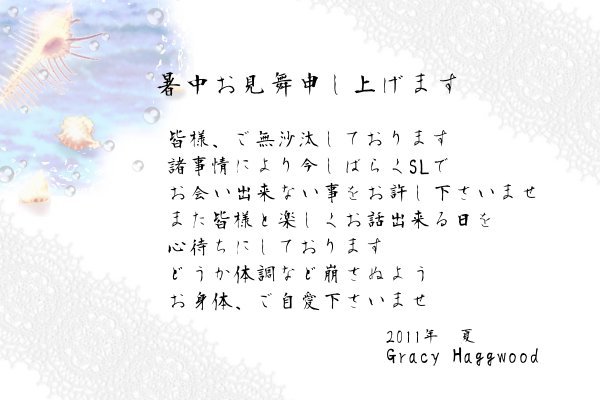 暑中お見舞申し上げます
皆様、ご無沙汰しております
諸事情により今しばらくSLで
お会い出来ない事をお許し下さいませ
また皆様と楽しくお話出来る日を
心待ちにしております
どうか体調など崩さぬよう
お身体、ご自愛下さいませ
2011年 夏
Gracy Haggwood